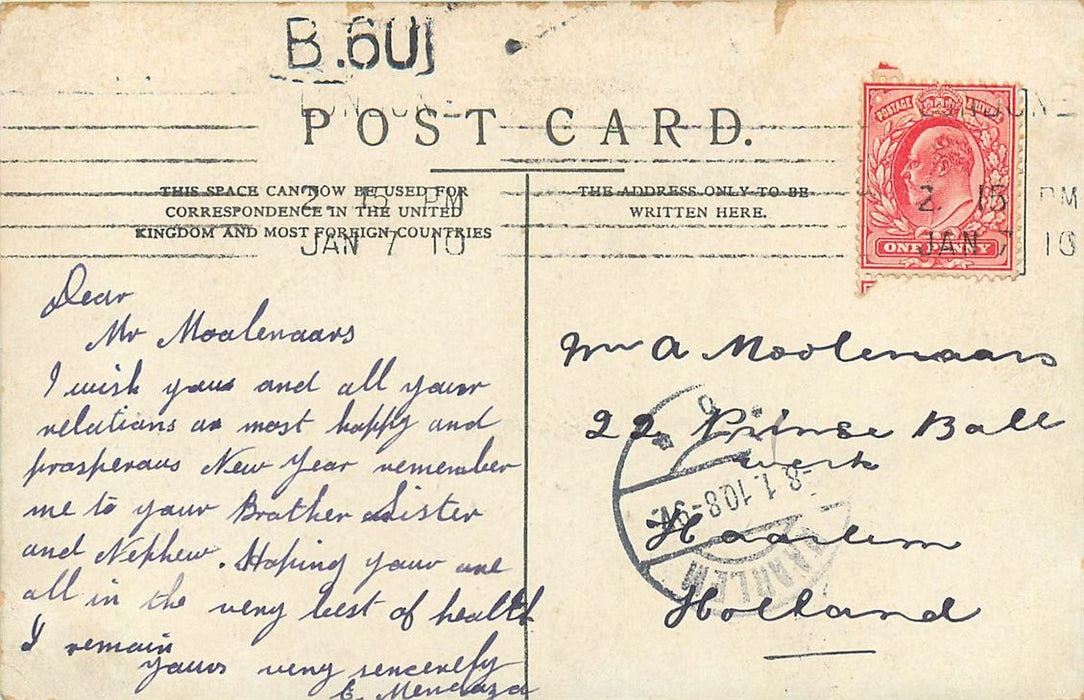 B.60
LONDON
POST CARD.
THIS SPACE CAN NOW BE USED FOR
CORRESPONDENCE IN THE UNITED
KINGDOM AND MOST FOREIGN COUNTRIES
THE ADDRESS ONLY TO BE
WRITTEN HERE.
2. 15 PM
JAN 7 10
POSTAGE
ONE PENNY
2. 15 PM
JAN 7 10
Dear
Mr Moolenaars
I wish yous and all your
relations a most happy and
prosperous New Year remember
me to your Brother Sister
and Nephew. Hoping your are
all in the very best of health
I remain
yours very sencerely
E. Mendoza
Mr A Moolenaars
22 Prinse Boll
werk
Haarlem
Holland
-8.1.10.8-9V.
HAARLEM